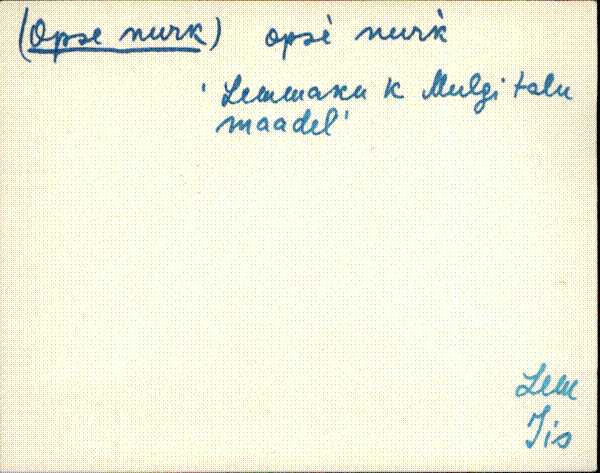 (Opse nurk) opsè nurk̀
'Lemmaku k Mulgi talu
maadel'
Lem
Iis